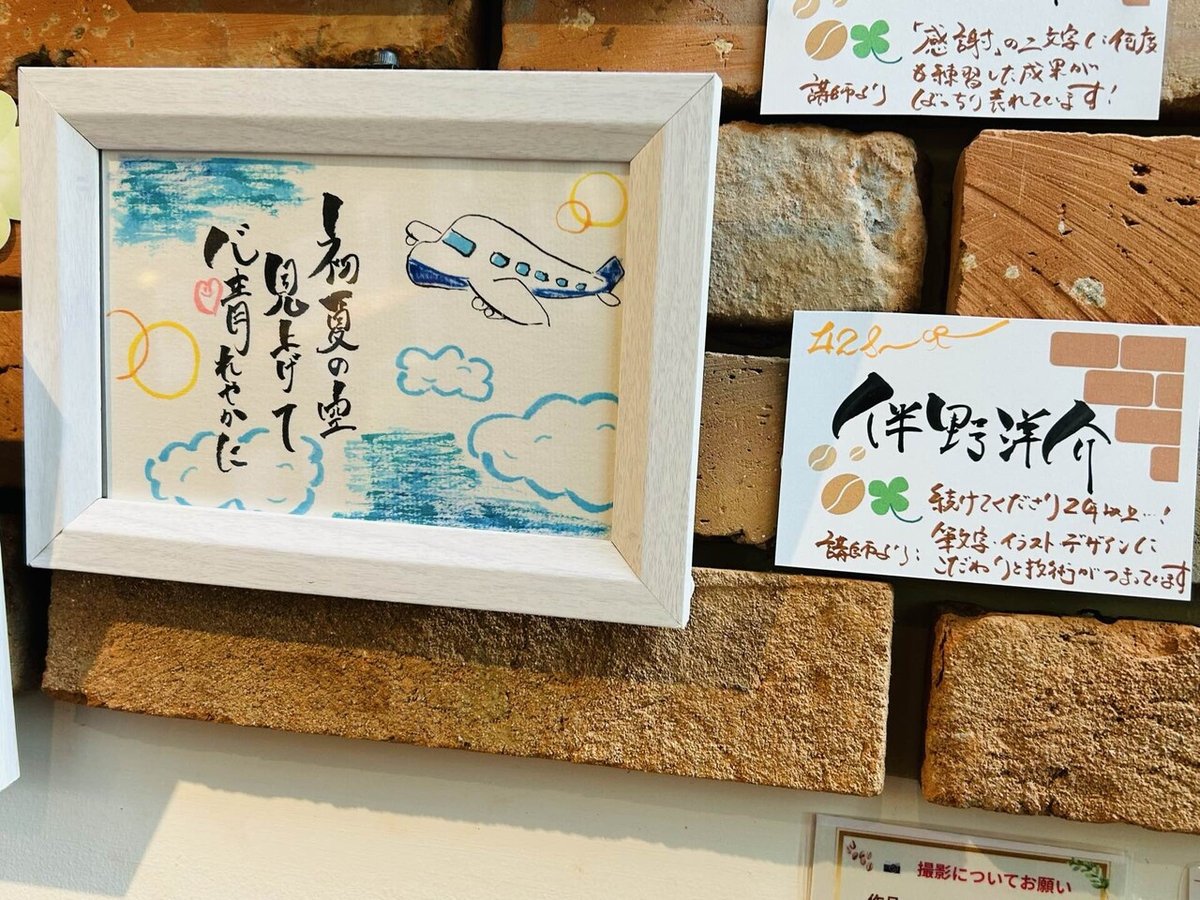 初夏の空
見上げて
心晴れやかに
「感謝」の二文字に何度
も練習した成果が
講師より ばっちり表れています!
伴野洋介
続けてくださり2年以上…!
筆文字・イラストデザインに
講師より: こだわりと技術がつまっています
撮影についてお願い